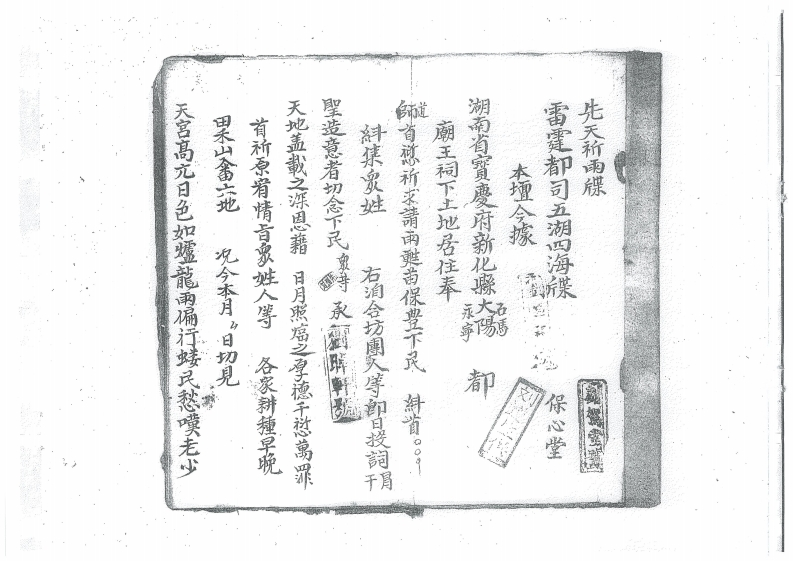 先天祈雨牒
雷霆都司五湖四海牒
本壇今據
湖南省寶慶府新化縣大陽都
石馬
永寧
廟王祠下土地居住奉
道
師首愆祈求請雨甦苗保豊下民 紏首○○○
紏集衆姓 右洎合坊團人等即日投詞冒干
聖造意者切念下民衆等 承
天地盖載之深恩藉 日月照臨之厚德千愆萬罪
首祈原宥情旨衆姓人等 各家耕種早晚
田禾山畬土地 况今本月 日切見
天宮高亢日色如爐龍雨偏行蝼民愁嘆老少
保心堂